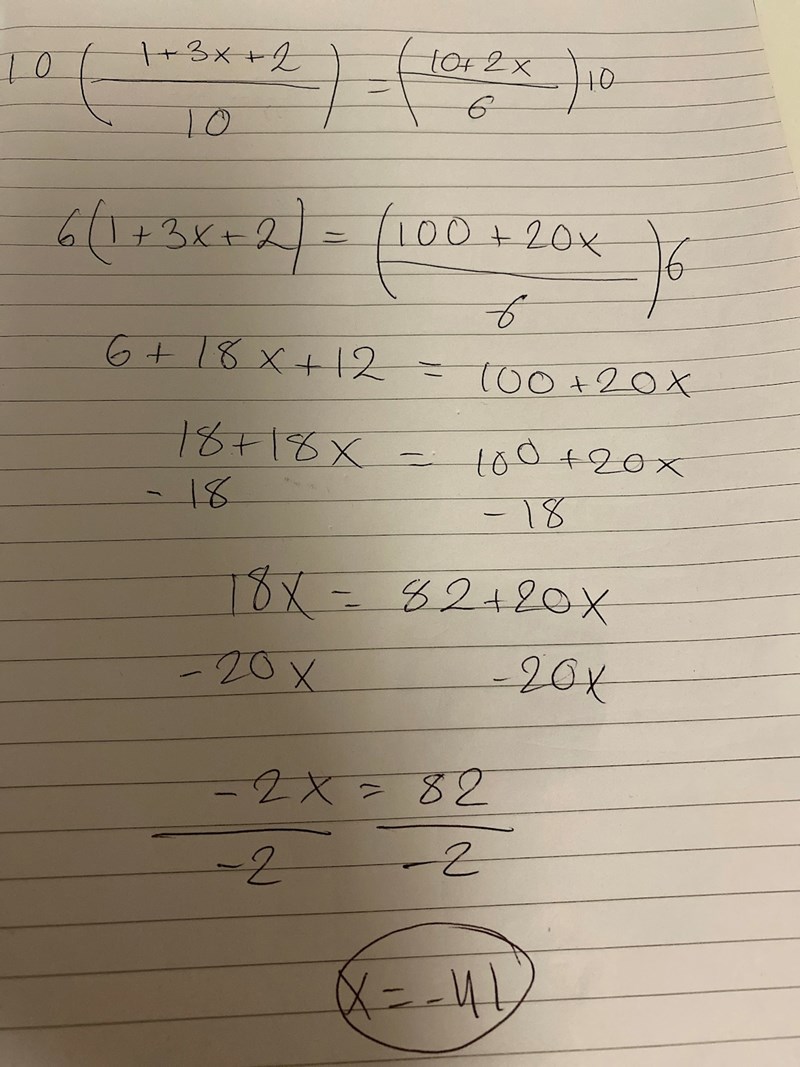 10 ( (1+3x+2)/10 ) = ( (10+2x)/6 ) 10
6(1+3x+2) = ( (100+20x)/6 ) 6
6+18x+12 = 100+20x
18+18x = 100+20x
-18 -18
18x = 82+20x
-20x -20x
-2x = 82
-2 -2
x=-41